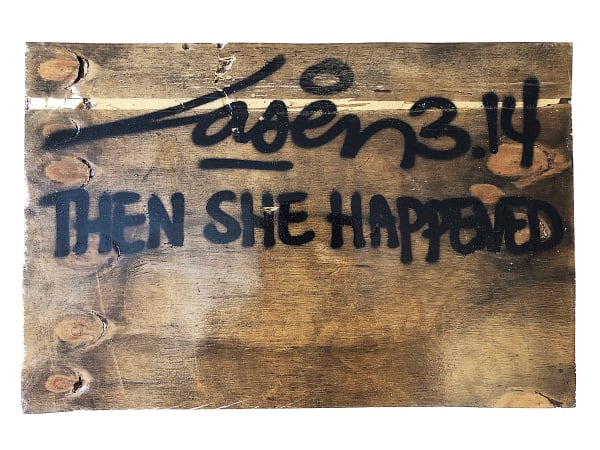 Laser 3.14
THEN SHE HAPPENED